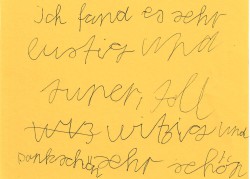 ich fand es sehr
lustig und
super, toll
witzig und
dankschön sehr schön